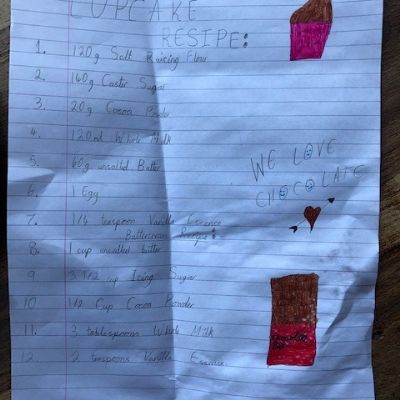 CUPCAKE
RESIPE:
1. 120g Salt Raising Flow
2. 140g Caster Sugar
3. 20g Cocoa Powder
4. 120ml Whole Milk
5. 60g unsalted Butter
6. 1 Egg
7. 1/4 teaspoon Vanilla Essence
Buttercream Recipe:
8. 1 cup unsalted butter
9 3 1/2 cup Icing Sugar
10 1/2 Cup Cocoa Powder
11. 3 tablespoons Whole Milk
12. 2 teaspoons Vanilla Essence
WE LOVE
CHOCOLATE